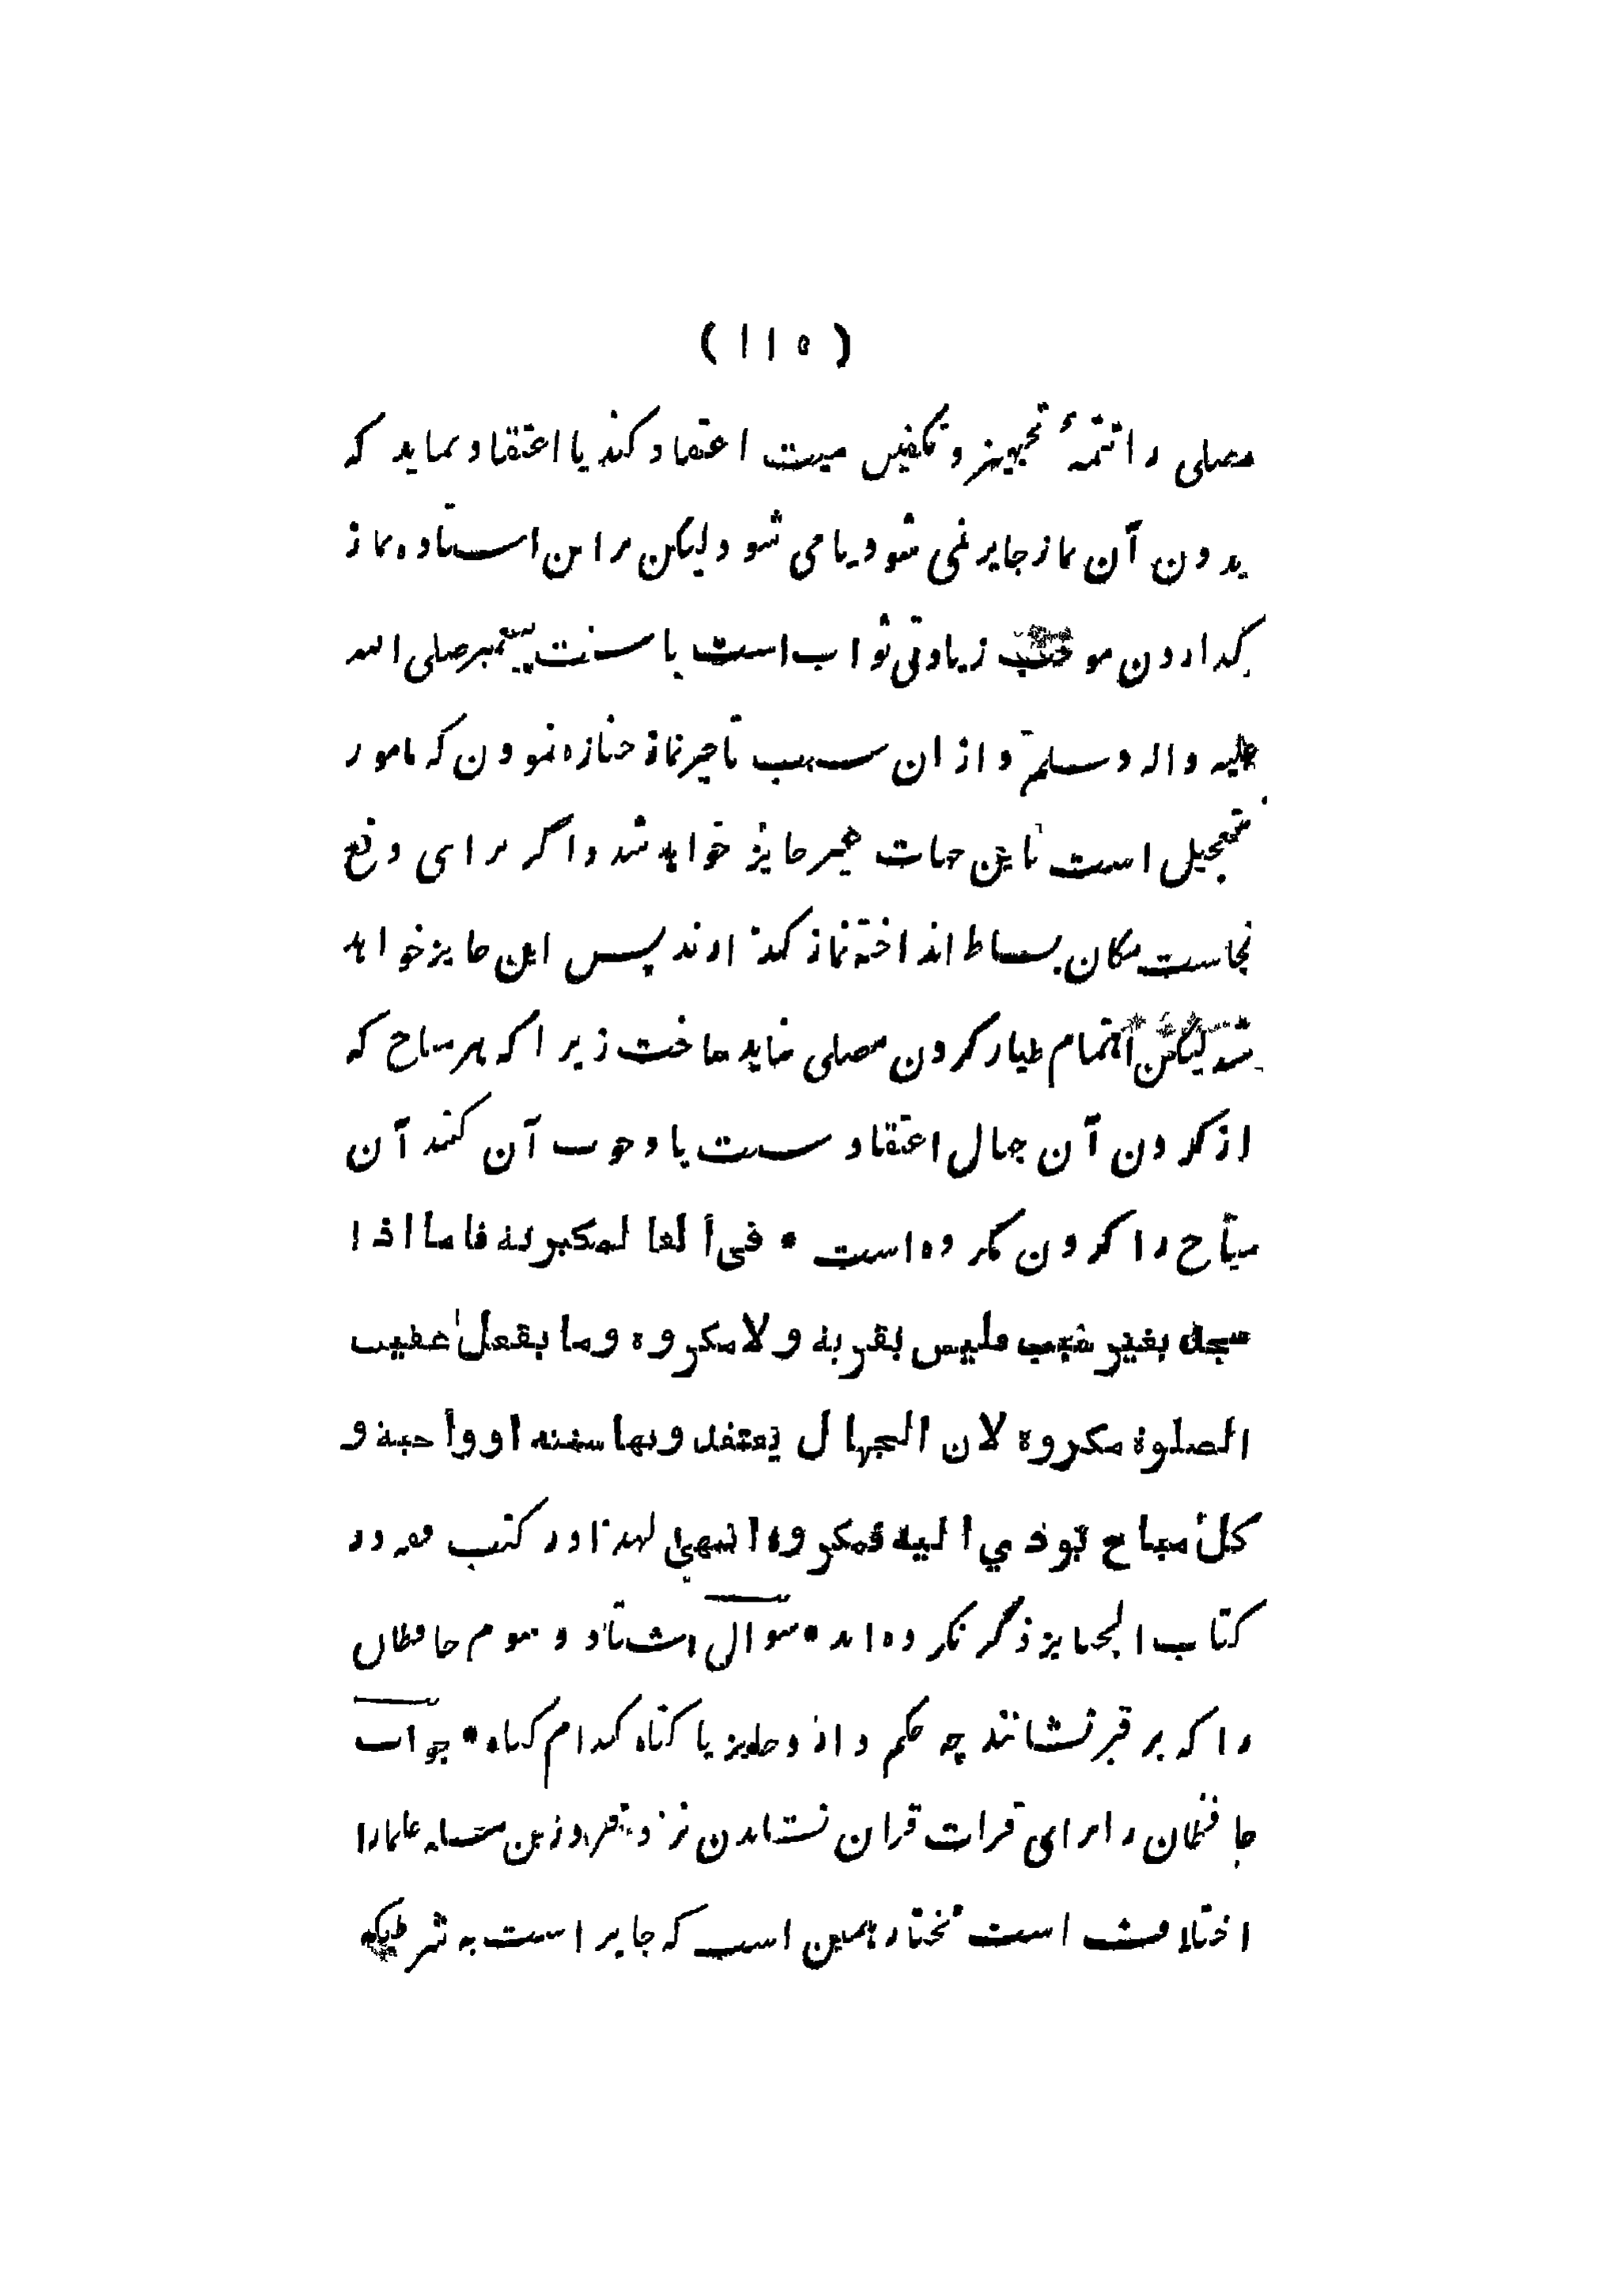 (۱۱۵)
مصلی را تتمهٔ تجهیز و تکفین میت اعتقاد کند یا اعتقاد نماید که
بدون آن نماز جایز نمی شود یا می شود لیکن بر این استاده نماز
گذاردن موجب زیادتی ثواب است یا سنت پیغمبر صلی الله
علیه واله وسلم و ازان سبب تاخیر نماز جنازه نمودن که مامور
بتعجیل است باین جهات غیر جایز خواهد شد و اگر برای دفع
نجاست مکان بساط انداخته نماز گذارند پس این جایز خواهد
شد لیکن اهتمام طیار کردن مصلی نباید ساخت زیرا که هر مباح که
از کردن آن جهال اعتقاد سنت یا وجوب آن کنند آن
مباح را کردن مکروه است * فی العالمکیریة فاما اذا
سجد بغیر سبب فلیس بقربة ولا مکروه وما یفعل عقیب
الصلوة مکروه لان الجهال یعتقدونها سنة او واجبة و
کل مباح یودي الیه فمکروه انتهی لهذا در کتب فقه در
کتاب الجنایز ذکر نکرده اند * سوال هشتاد و سوم حافظان
را که بر قبر نشانند چه حکم دارد جایز یا گناه کدام گناه * جواب
حافظان را برای قرات قران نشاندن نزد قبر درین مسئله علما را
اختلاف است مختار همین است که جایز است به شرطیکه